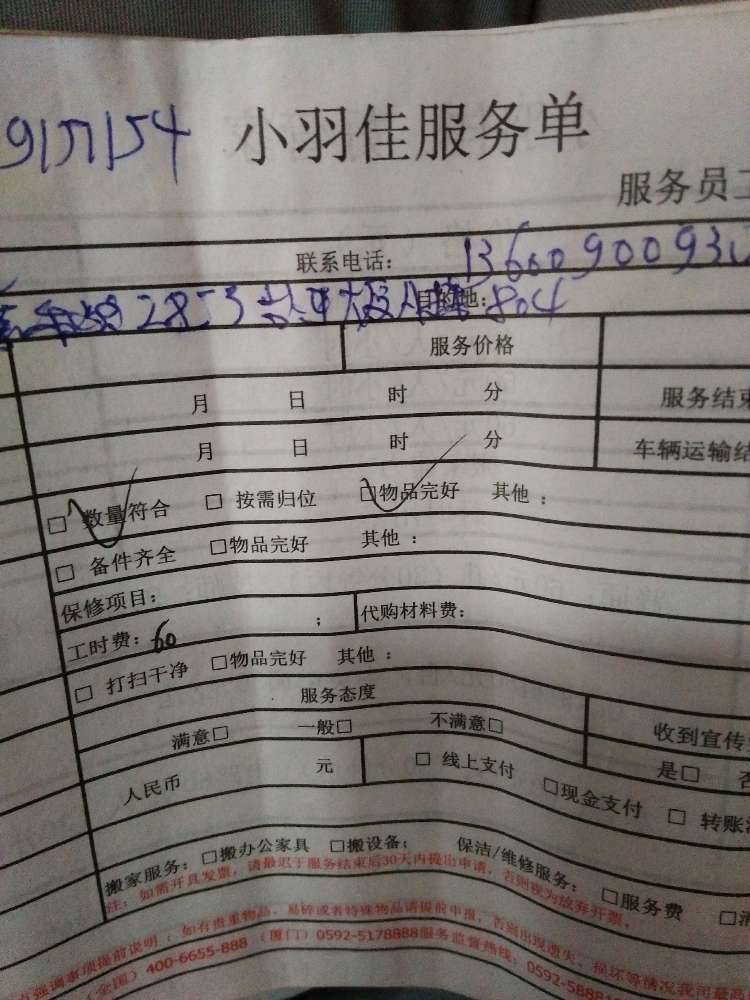 9151154 小羽佳服务单
服务员工
联系电话: 1360090093
2853 目的地: 804
服务价格
月 日 时 分 服务结束
月 日 时 分 车辆运输结
□ 数量符合 □ 按需归位 □物品完好 其他:
□ 备件齐全 □物品完好 其他:
保修项目:
工时费: 60 ; 代购材料费:
□ 打扫干净 □物品完好 其他:
服务态度
满意□ 一般□ 不满意□ 收到宣传
是□ 否
人民币 元 □ 线上支付 □现金支付 □ 转账
搬家服务: □搬办公家具 □搬设备; 保洁/维修服务: □服务费
注: 如需开具发票, 请最迟于服务结束后30天内提出申请, 否则视为放弃开票。
强调事项提前说明: 如有贵重物品、易碎或者特殊物品请提前申报, 否则出现遗失、损坏等情况我司最高
(全国) 400-6655-888 (厦门) 0592-5178888服务监督热线: 0592-5888